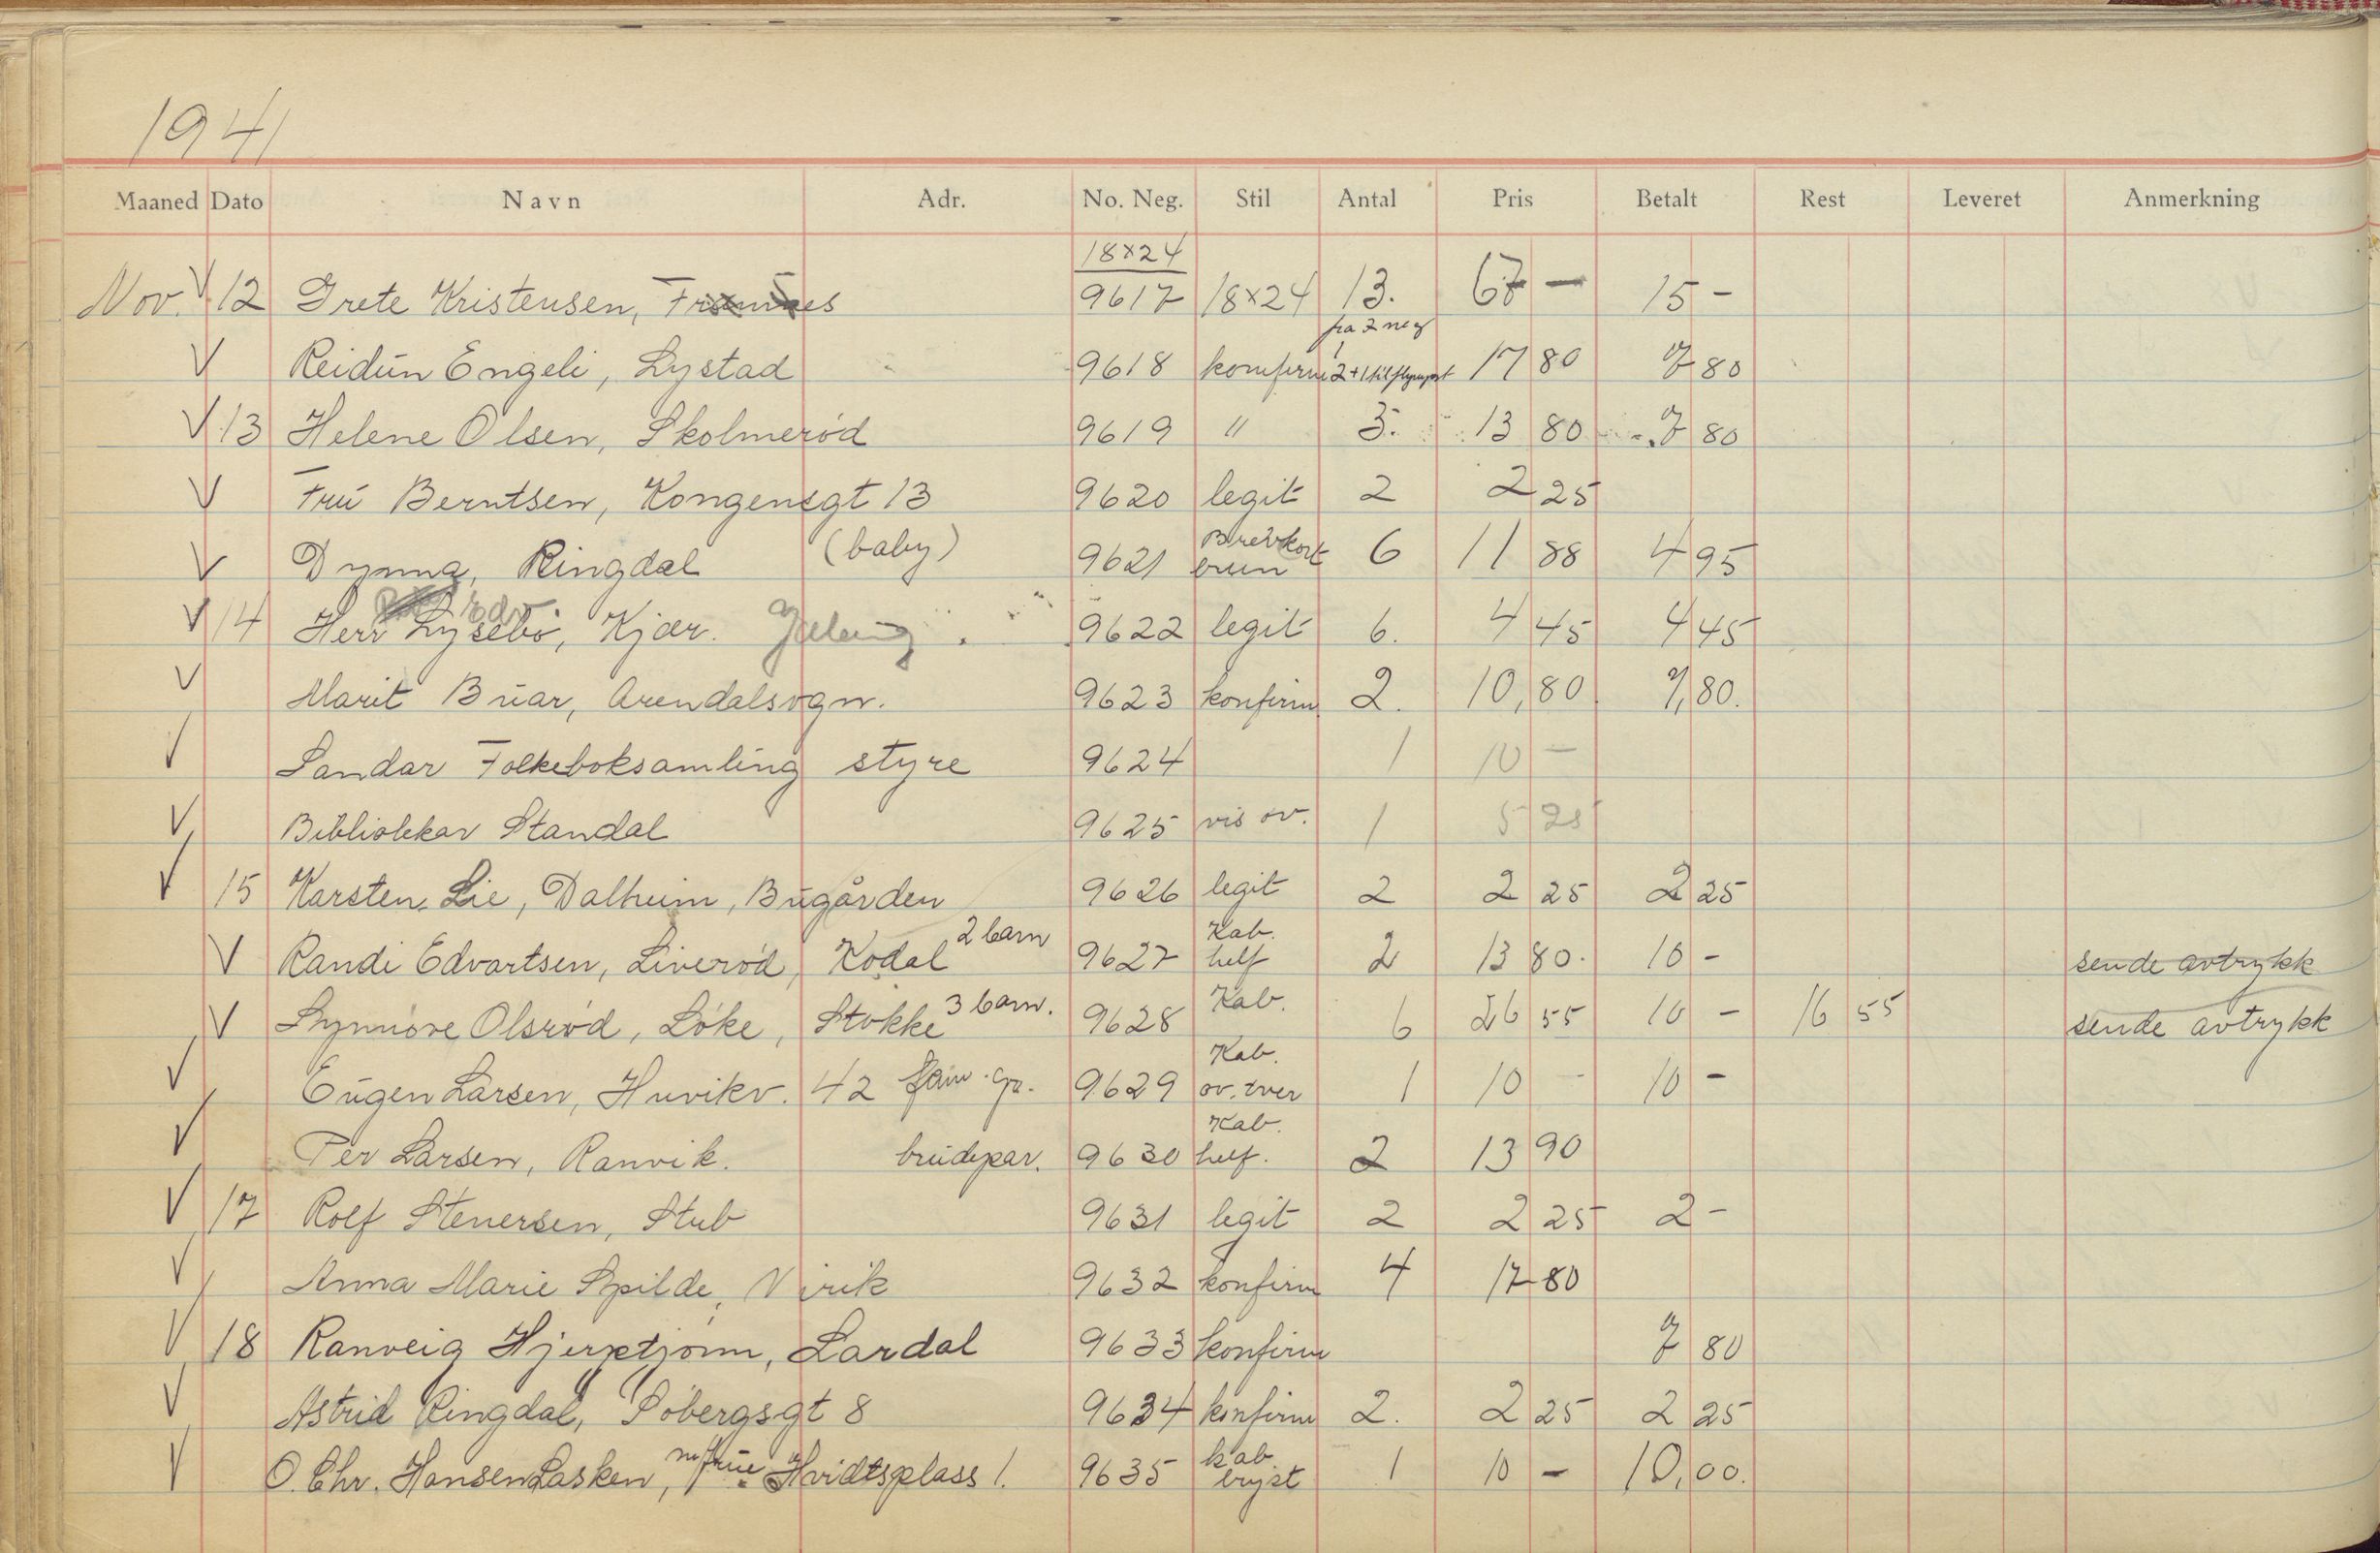 1941
Maaned Dato Navn Adr. No. Neg. Stil Antal Pris Betalt Rest Leveret Anmerkning
18x24
Nov. V 12 Grete Kristensen, Framnes 9617 18x24 13. 67 — 15 -
fra 2 neg
V Reidun Engeli, Lystad 9618 konfirm 2+1 til 17 80 7 80
V 13 Helene Olsen, Skolmerød 9619 " 3. 13 80 7 80
V Fru Berntsen, Kongensgt 13 9620 legit 2 2 25
V Dynna, Ringdal (baby) 9621 Brevkort brun 6 11 88 4 95
V 14 Herr Lysebø, Kjær. 9622 legit 6. 4 45 4 45
V Marit Buar, Arendalsvgn. 9623 konfirm 2. 10,80 7,80.
V Sandar Folkeboksamling styre 9624 1 10 —
V Bibliotekar Standal 9625 vis ov. 1 5 25
V 15 Karsten Lie, Dalheim, Bugården 9626 legit 2 2 25 2 25
V Randi Edvartsen, Liverød, Kodal 2 barn 9627 Kab. helf 2 13 80. 10 - sende avtrykk
V Synnøve Olsrød, Løke, Stokke 3 barn. 9628 Kab. 6 26 55 10 - 16 55 sende avtrykk
V Eugen Larsen, Huvikv. 42 fam. gr. 9629 Kab. ov. tver 1 10 - 10 -
V Per Larsen, Ranvik. brudepar. 9630 Kab. helf. 2 13 90
V 17 Rolf Stenersen, Stub 9631 legit 2 2 25 2 -
V Anna Marie Spilde, Virik 9632 konfirm 4 17 80
V 18 Ranveig Hjerptjønn, Lardal 9633 konfirm 7 80
V Astrid Ringdal, Søbergsgt 8 9634 konfirm 2. 2 25 2 25
V O. Chr. Hansen Lasken, m/frue Hvidtsplass 1. 9635 kab bryst 1 10 - 10,00.